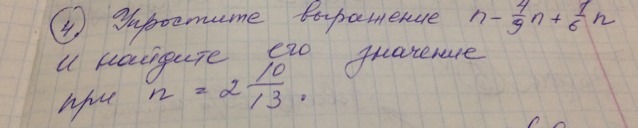 4. Упростите выражение n - 4/9 n + 1/6 n
и найдите его значение
при n = 2 10/13.